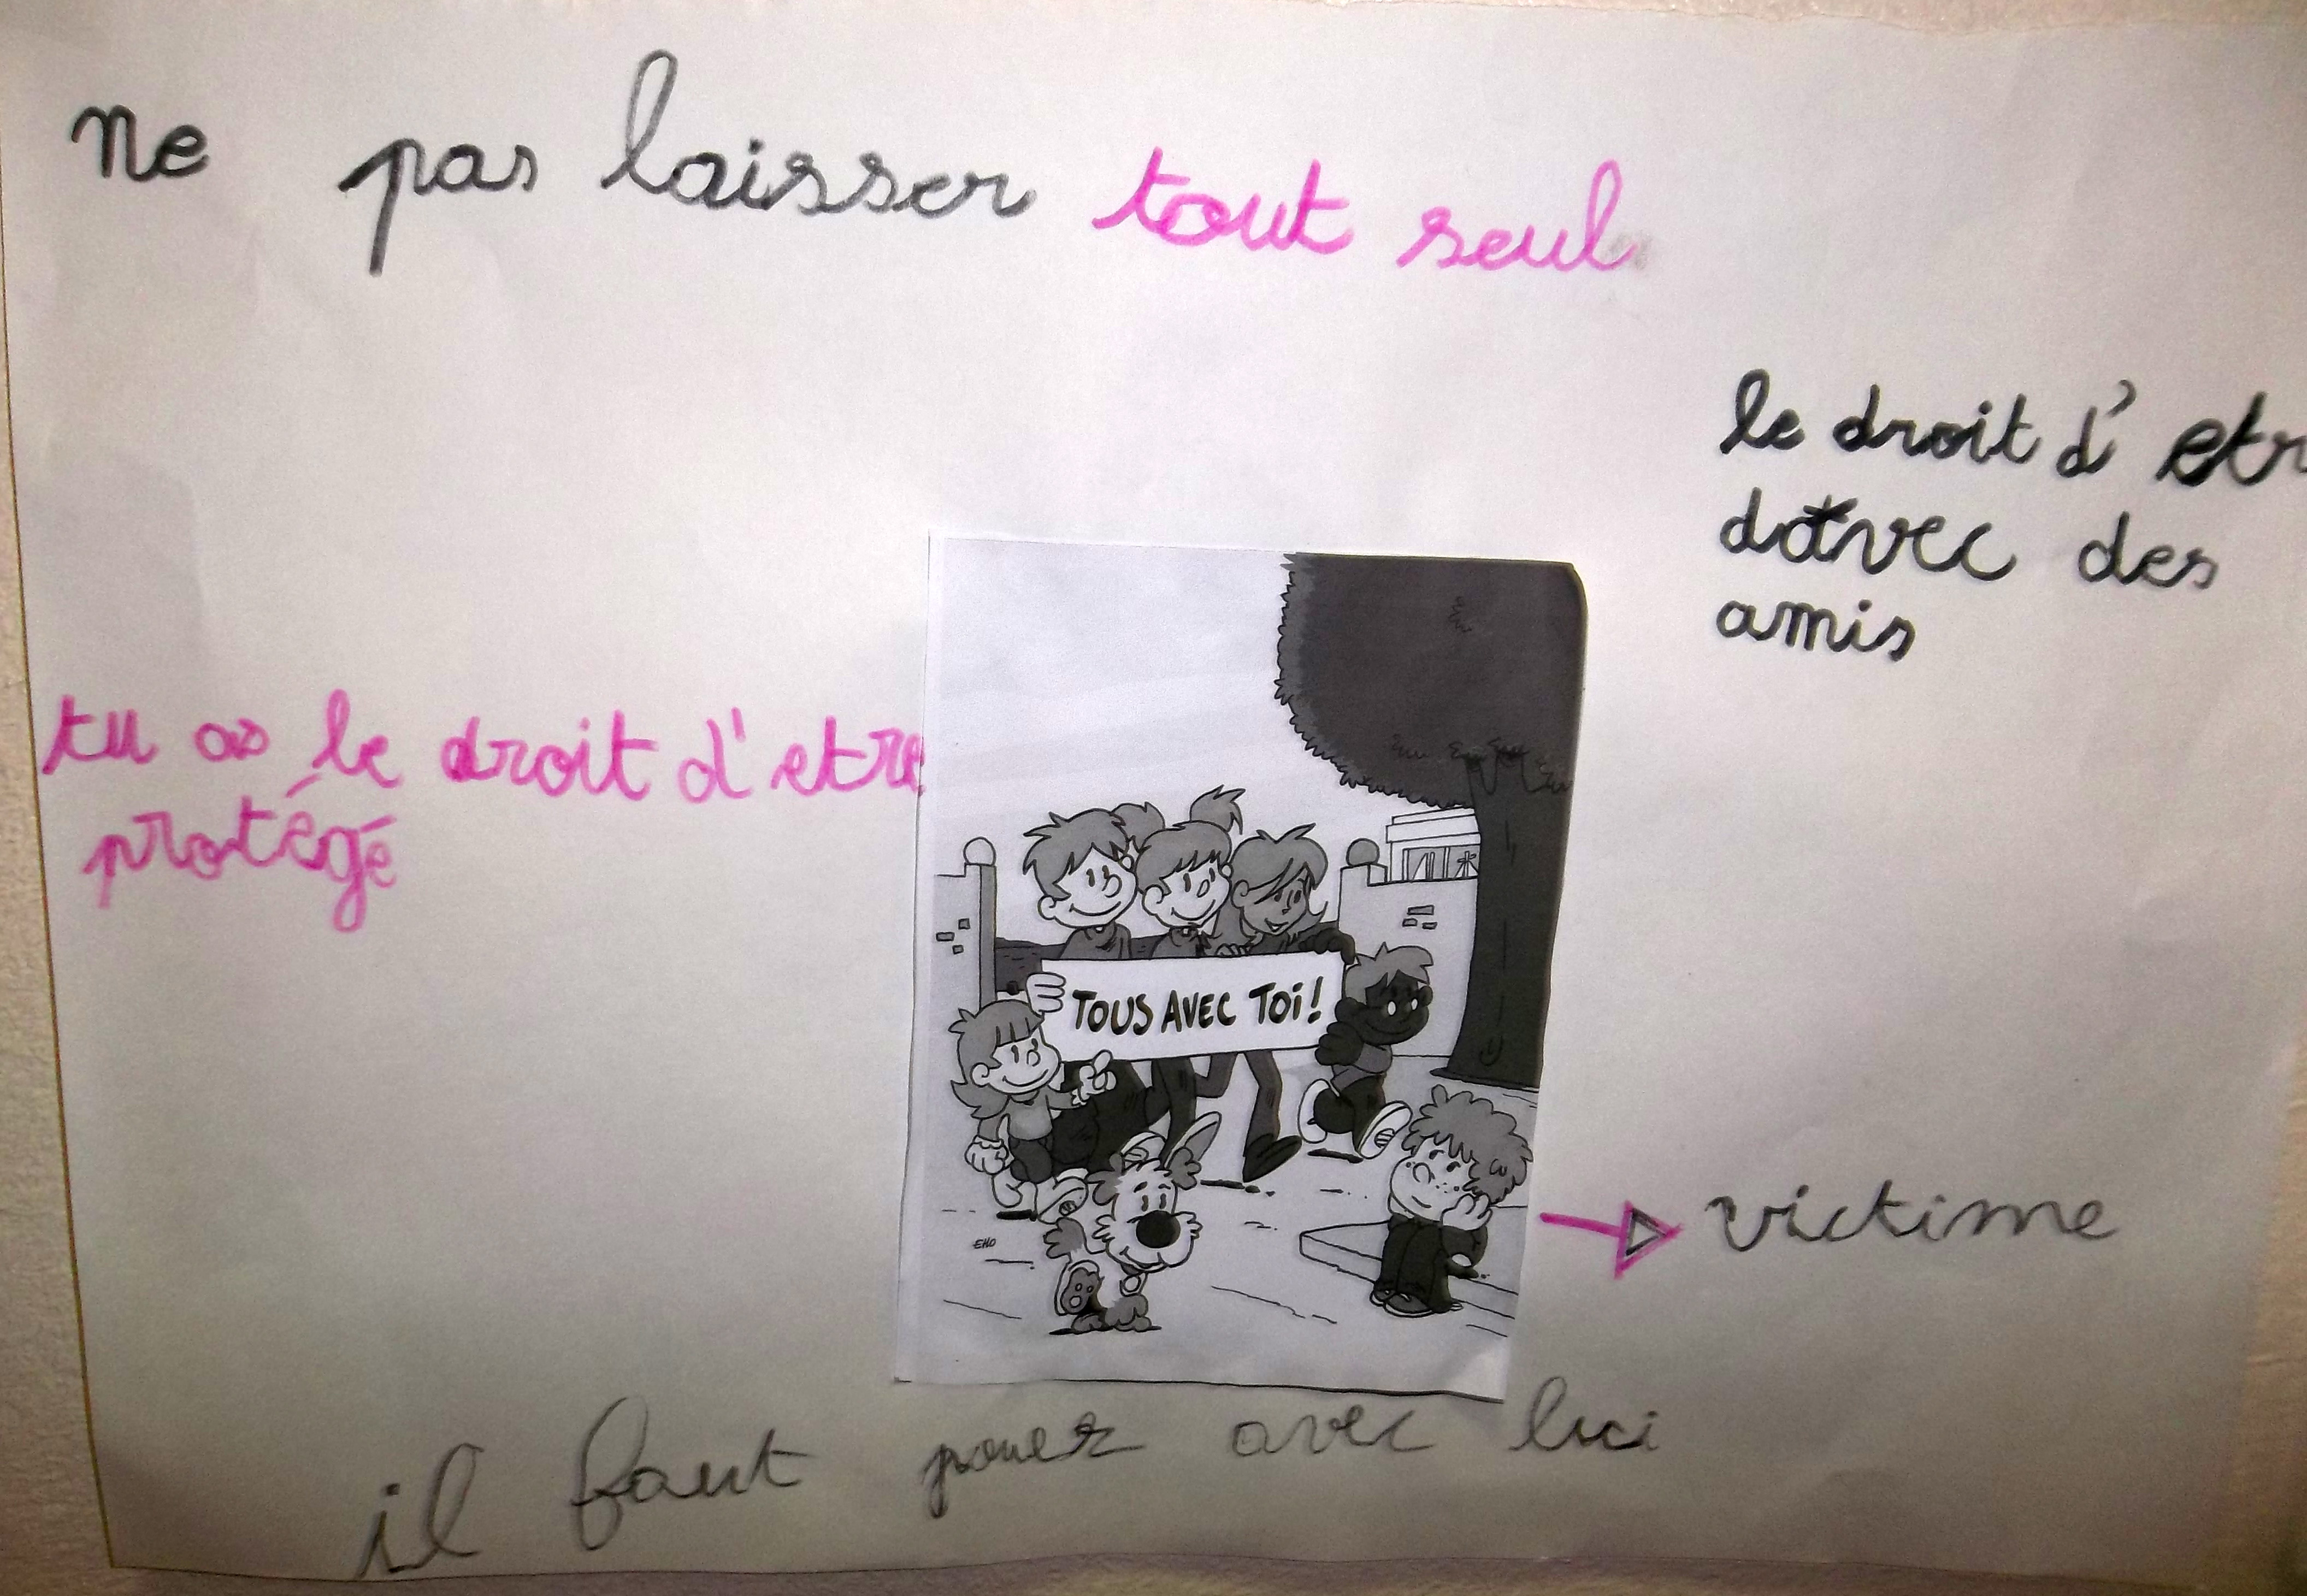 ne pas laisser tout seul
le droit d'etr
davec des
amis
tu as le droit d'etre
protégé
TOUS AVEC TOI!
EHO
victime
il faut jouer avec lui